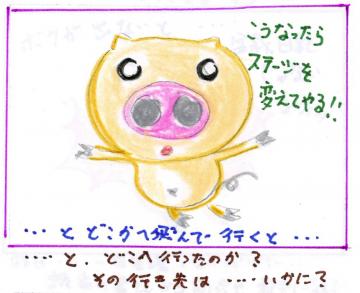 こうなったら
ステージを
変えてやる!!
… と どこかへ飛んで行くと …
… と、どこへ行ったのか?
その行き先は …‥ いかに?